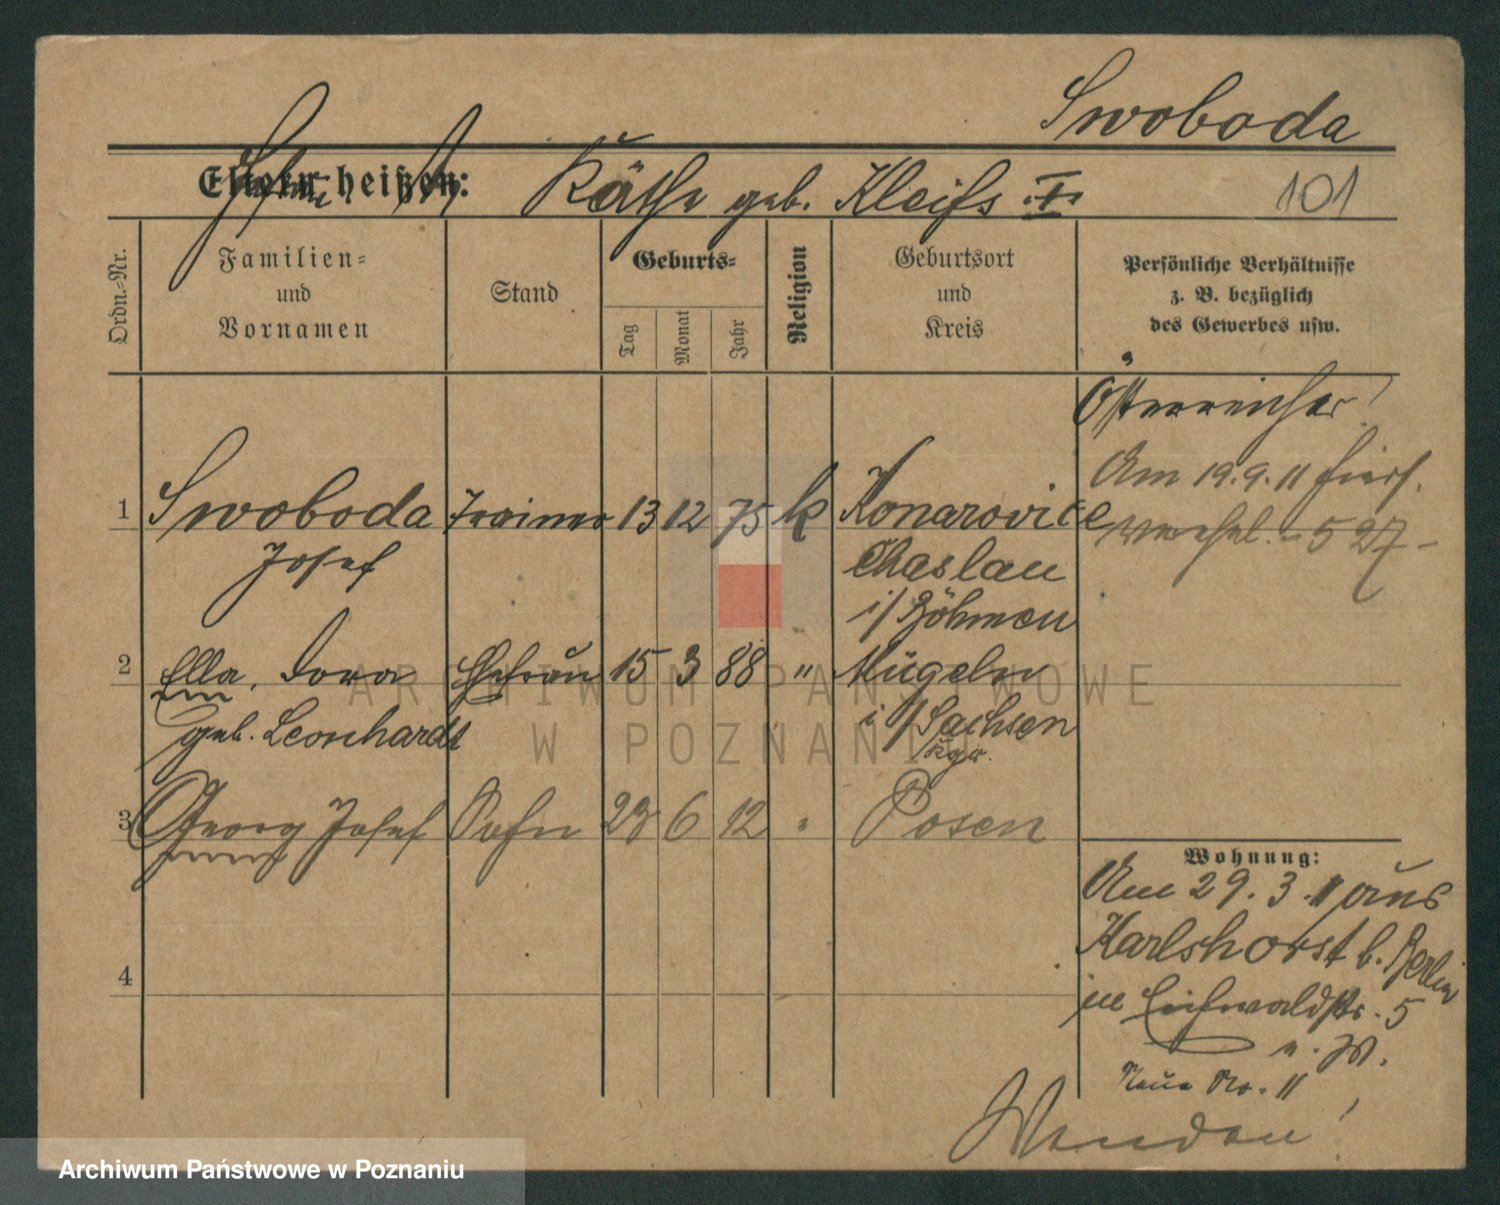 Swoboda
Eltern heißen: Käthe geb. Kleiß
101
Ordn.-Nr.
Familien-
und
Vornamen
Stand
Geburts-
Tag
Monat
Jahr
Religion
Geburtsort
und
Kreis
Persönliche Verhältnisse
z. B. bezüglich
des Gewerbes usw.
Österreicher!
Am 19.9.11
527
1 Swoboda Trainer 13 12 75 k Konarovice
Josef Chaslau
i/Böhmen
2 Ella, Dora Ehefrau 15 3 88 " Mügeln
geb. Leonhardt i/Sachsen
Kgr.
3 Georg Josef Sohn 23 6 12 " Posen
4
Wohnung:
Am 29.3.11 aus
Karlshorst b. Berlin
in Eichwaldstr. 5
b. W.
Neue No. 11
Wenden!
ARCHIWUM PAŃSTWOWE
W POZNANIU
Archiwum Państwowe w Poznaniu